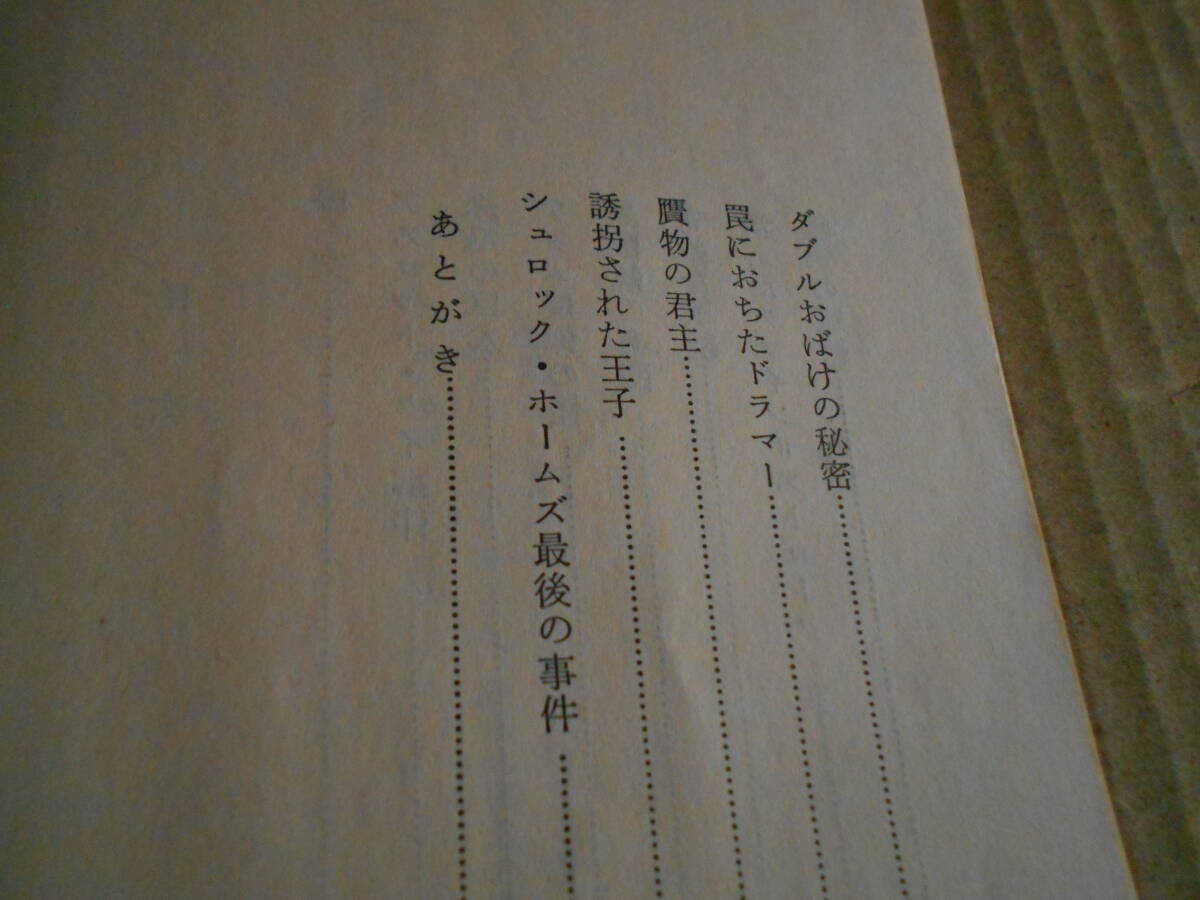 ダブルおばけの秘密
罠におちたドラマー
贋物の君主
誘拐された王子
シュロック・ホームズ最後の事件
あとがき